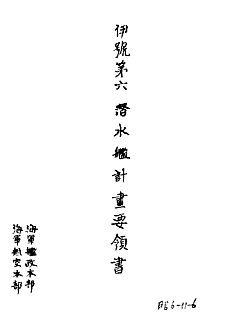 伊號第六潜水艦計畫要領書
海軍艦政本部
海軍航空本部
昭6-11-6